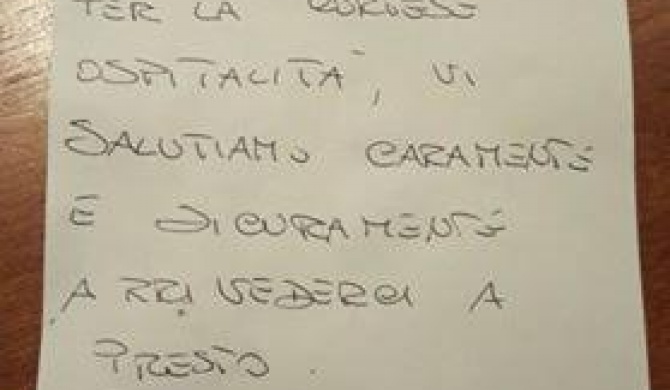 PER LA CORTESE
OSPITALITA', VI
SALUTIAMO CARAMENTE
E SICURAMENTE
ARRIVEDERCI A
PRESTO.